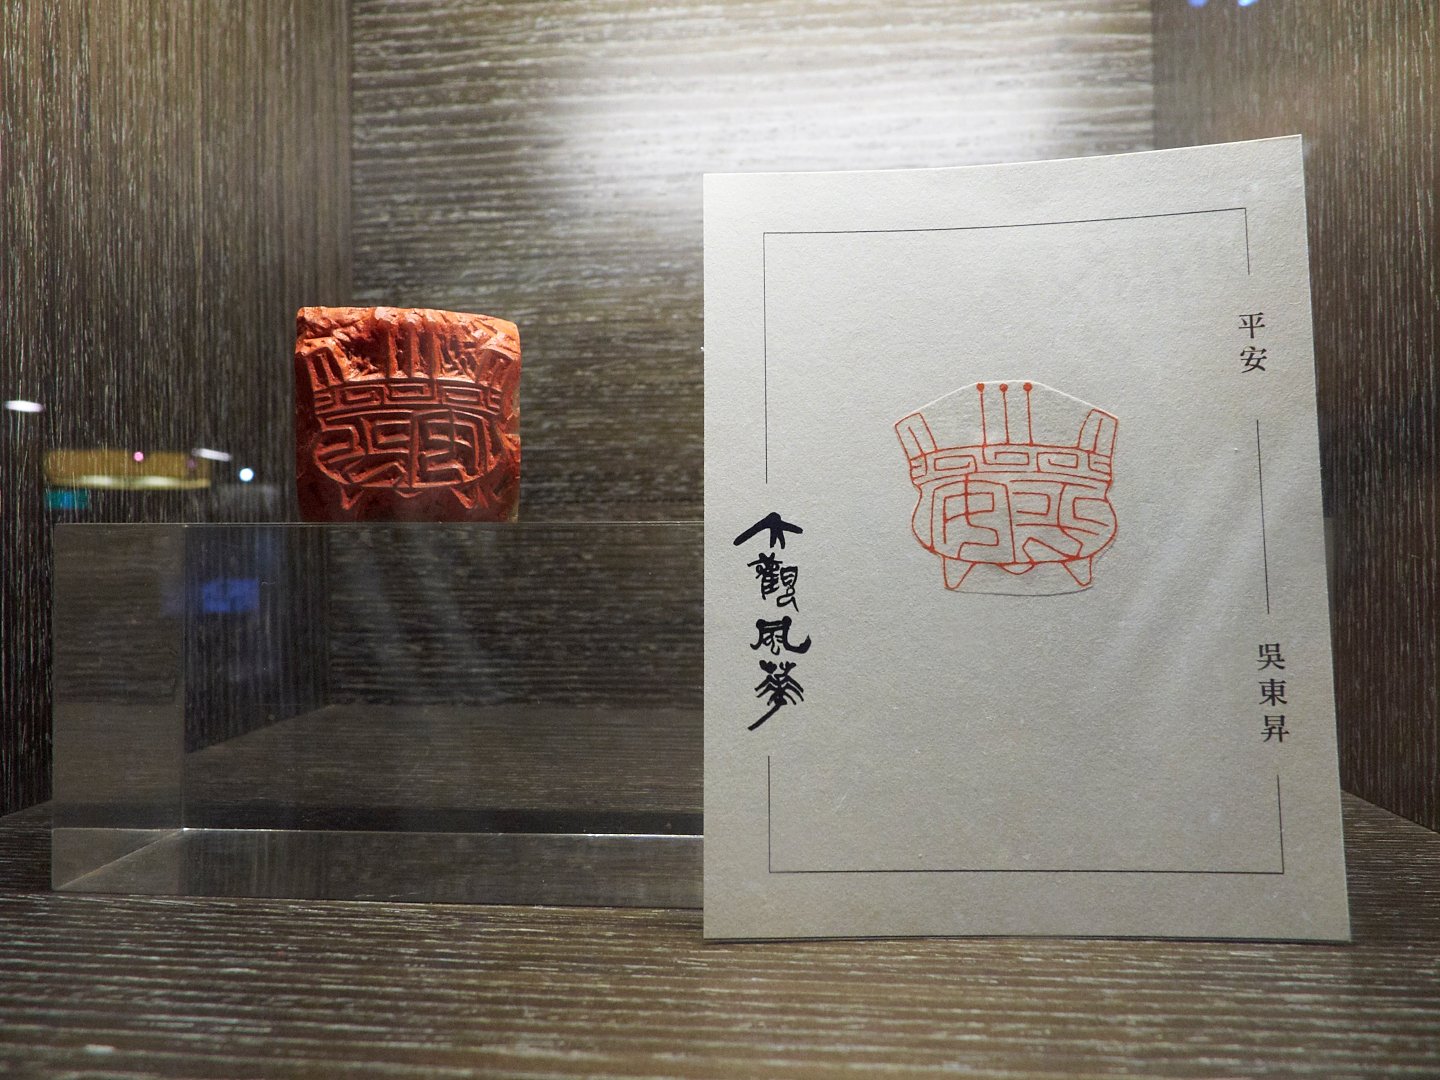 平安
吳東昇
大觀風華